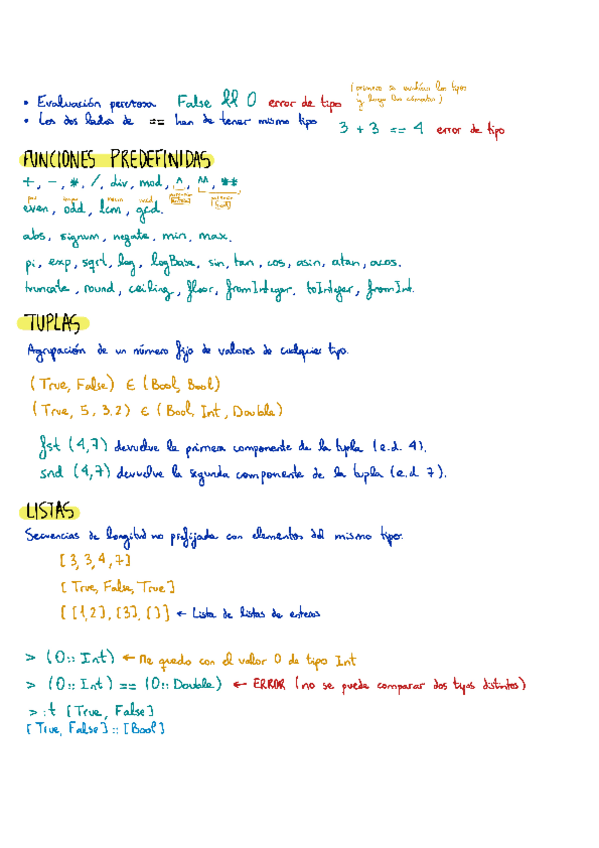 (primero se evalúan los tipos
y luego los cómputos)
• Evaluación perezosa False && 0 error de tipo
• Los dos lados de == han de tener mismo tipo 3 + 3 == 4 error de tipo
FUNCIONES PREDEFINIDAS
+, -, *, /, div, mod, ^, ^^, **
par impar mcm mcd
even, odd, lcm, gcd.
abs, signum, negate, min, max.
pi, exp, sqrt, log, logBase, sin, tan, cos, asin, atan, acos.
truncate, round, ceiling, floor, fromInteger, toInteger, fromInt.
TUPLAS
Agrupación de un número fijo de valores de cualquier tipo.
(True, False) ∈ (Bool, Bool)
(True, 5, 3.2) ∈ (Bool, Int, Double)
fst (4,7) devuelve la primera componente de la tupla (e.d. 4).
snd (4,7) devuelve la segunda componente de la tupla (e.d 7).
LISTAS
Secuencias de longitud no prefijada con elementos del mismo tipo.
[3,3,4,7]
[True, False, True]
[[1,2], [3], []] ← Lista de listas de enteros
> (0:: Int) ← Me quedo con el valor 0 de tipo Int
> (0:: Int) == (0:: Double) ← ERROR (no se puede comparar dos tipos distintos)
> :t [True, False]
[True, False] :: [Bool]